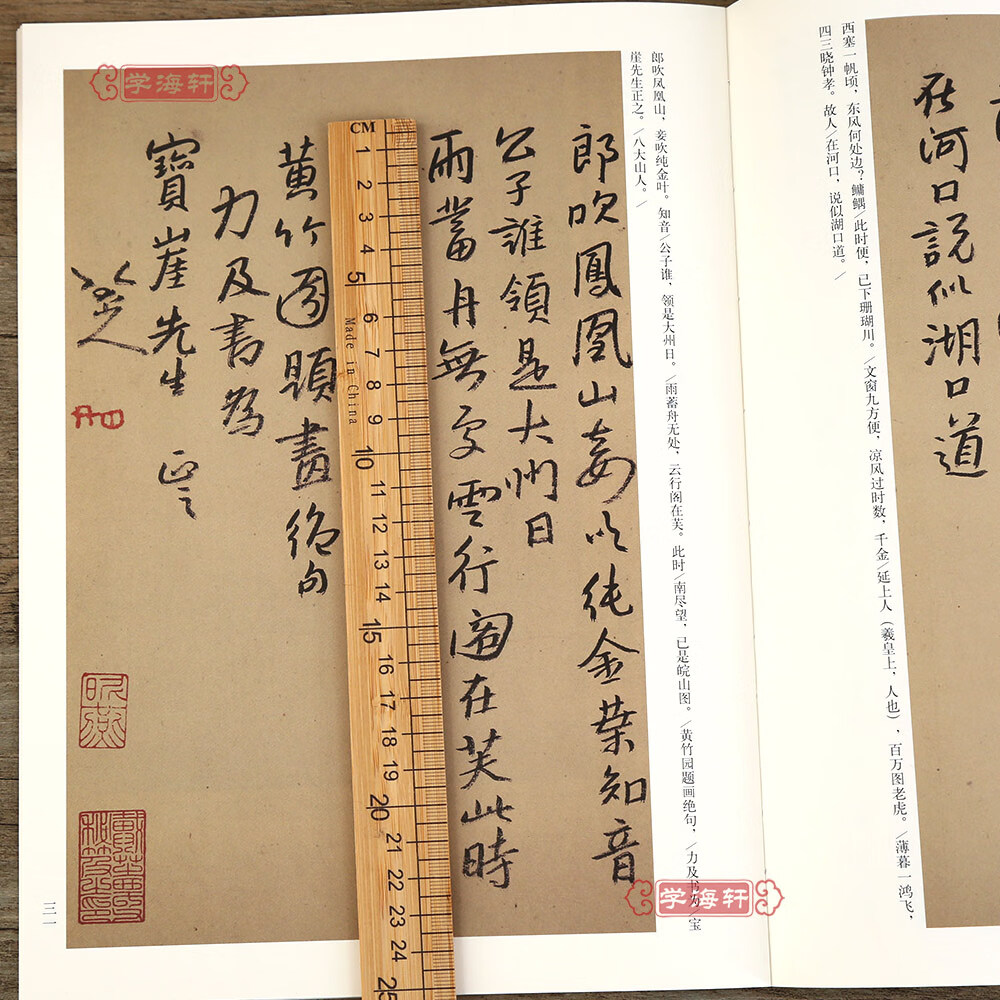 在河口説似湖口道
西塞一帆顷，东风何处边？鳙鳎/此时便，已下珊瑚川。/文窗九方便，凉风过时数，千金/延上人（羲皇上，人也），百万图老虎。/薄暮一鸿飞，
四三晓钟孝。故人/在河口，说似湖口道。/
郎吹凤凰山，妾吹纯金叶。知音/公子谁，领是大州日。/雨蓄舟无处，云行阁在芙。此时/南尽望，已是皖山图。/黄竹园题画绝句，/力及书为/宝
崖先生正之。/八大山人。/
郎吹鳳凰山妾吹純金葉知音
公子誰領是大州日
雨蓄舟無處雲行閣在芙此時
黄竹園題畫絶句
力及書為
寶崖先生正之
八大山人
三一
CM
1 2 3 4 5 6 7 8 9 10 11 12 13 14 15 16 17 18 19 20 21 22 23 24 25
Made in China
学海轩
学海轩